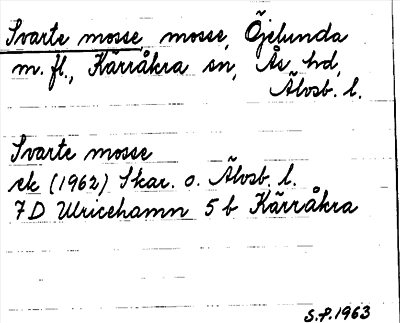 Svarte mosse, mosse, Öjelunda
m. fl., Kärråkra sn, Ås hd,
Älvsb. l.
Svarte mosse
ek (1962) Skar. o. Älvsb. l.
7D Ulricehamn 5 b Kärråkra
S.P. 1963